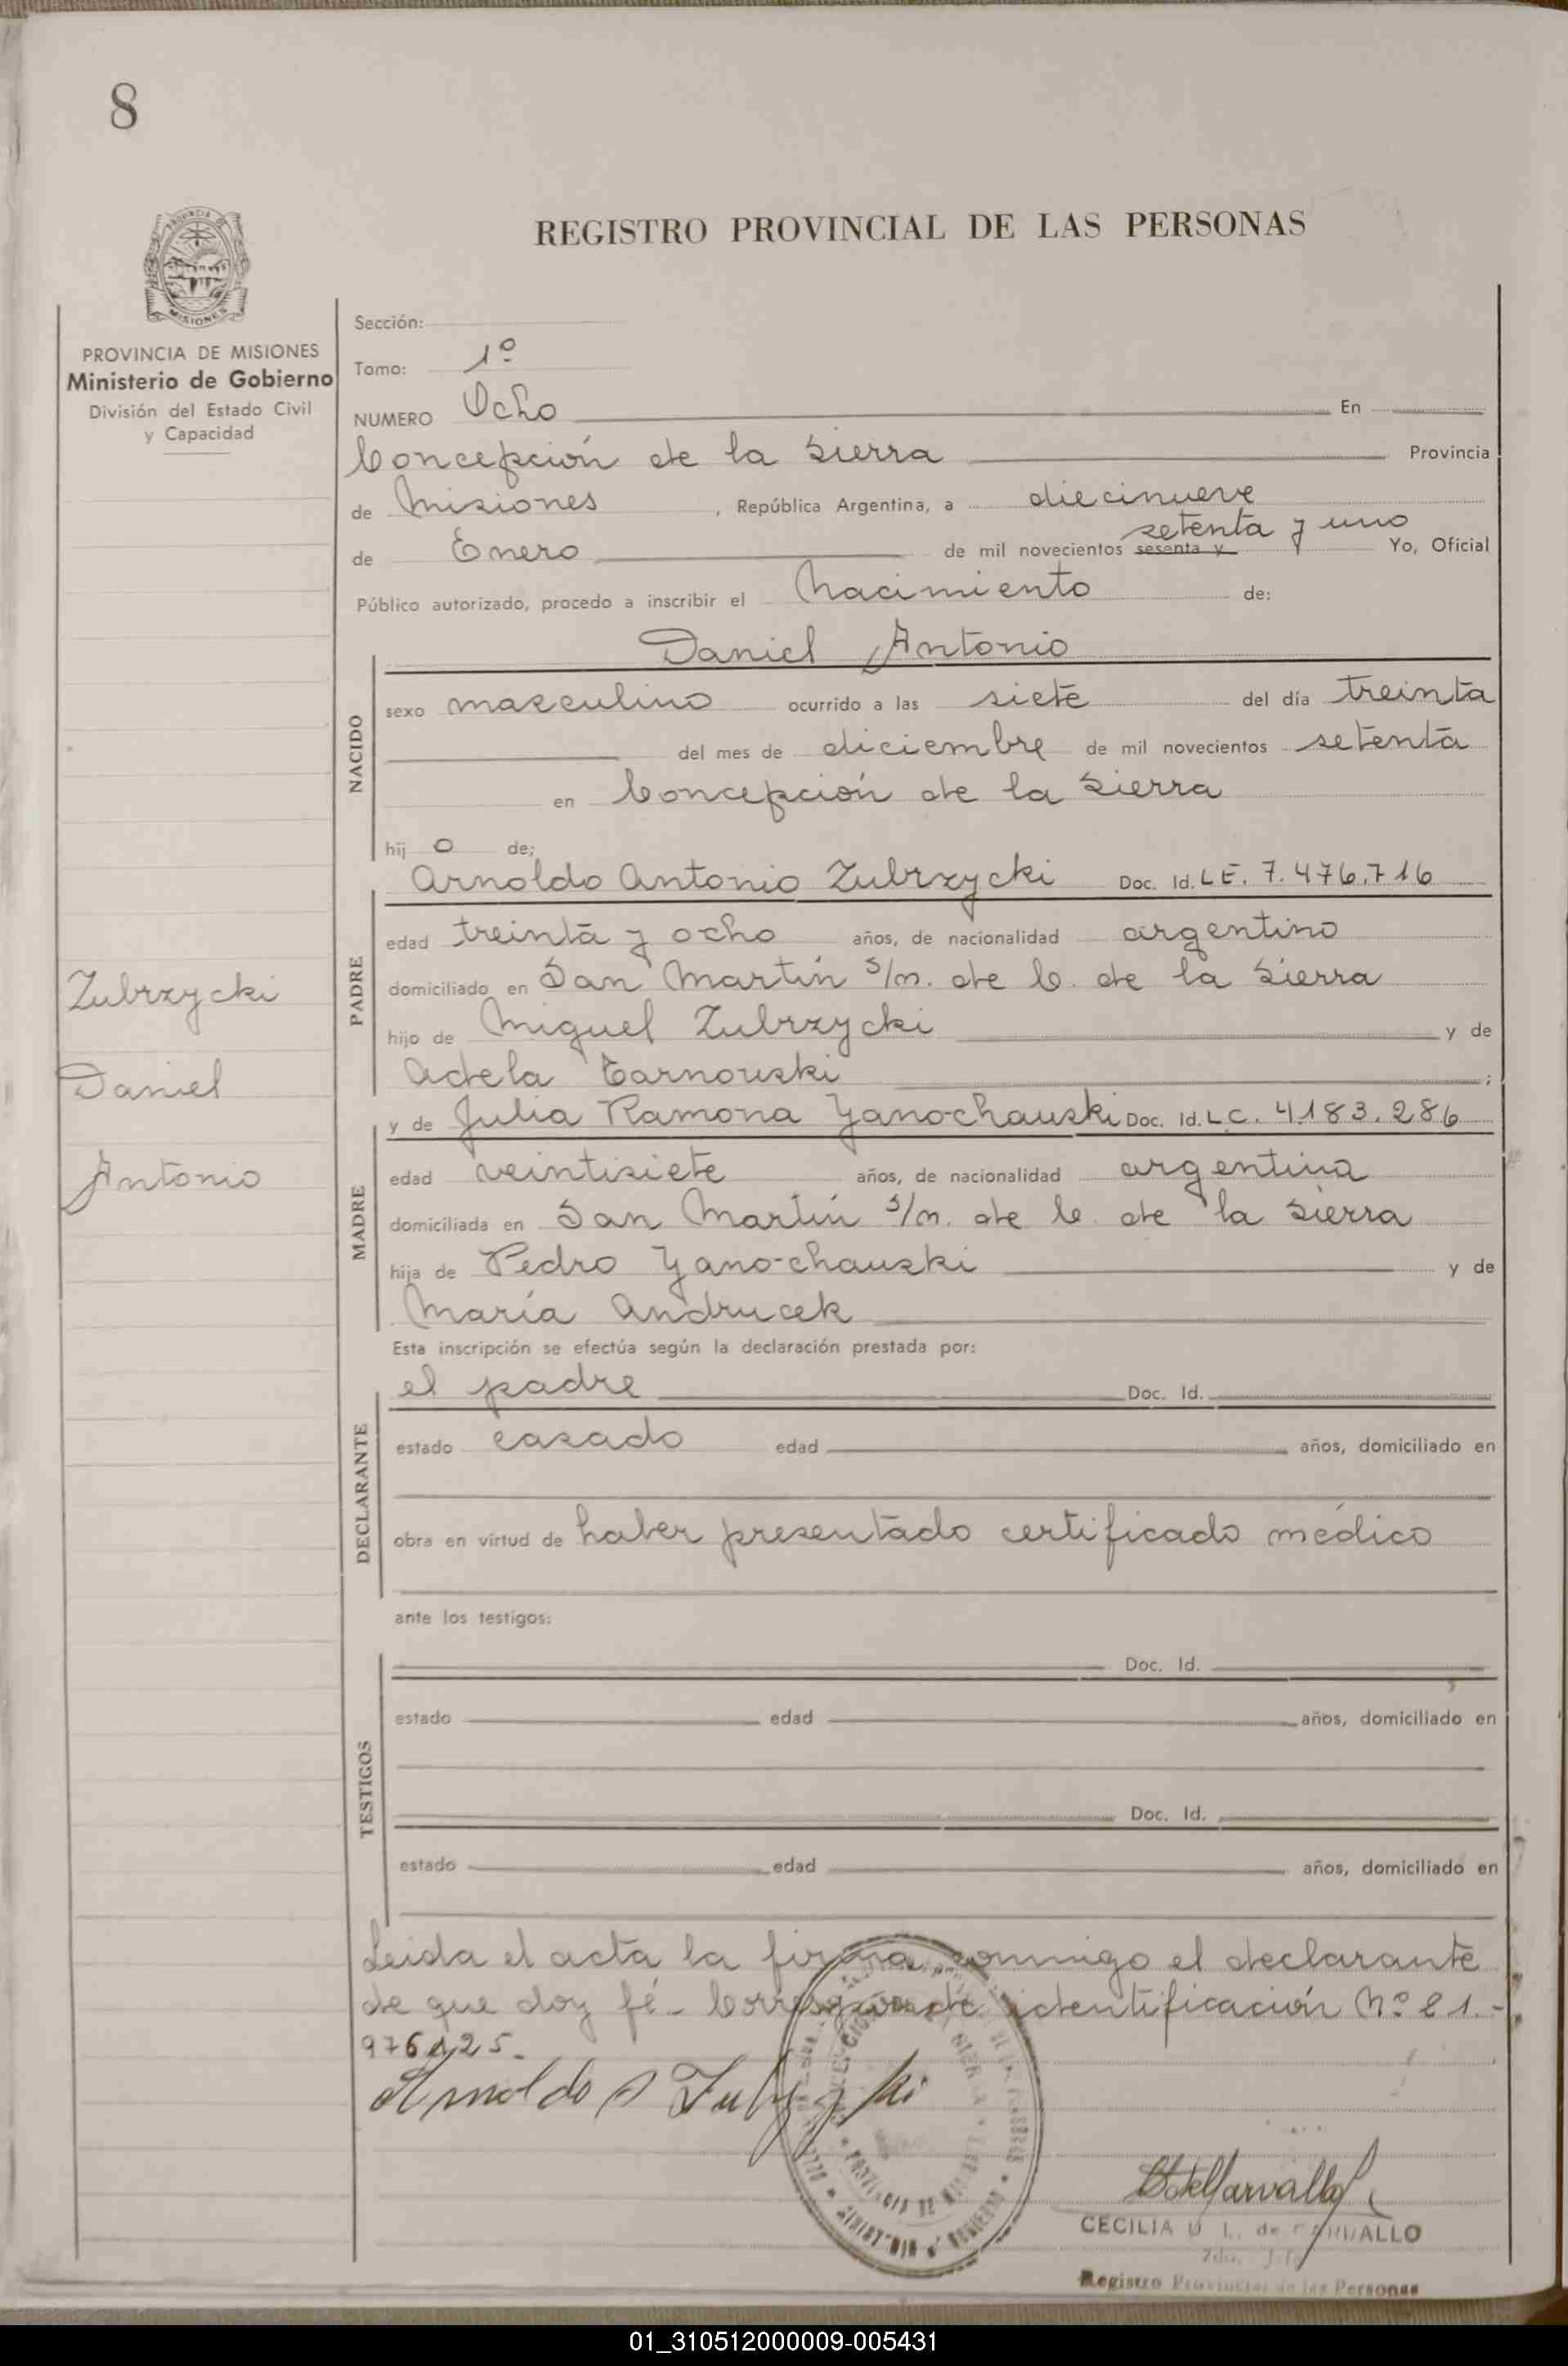 8
REGISTRO PROVINCIAL DE LAS PERSONAS
PROVINCIA DE MISIONES
Ministerio de Gobierno
División del Estado Civil
y Capacidad
Sección:
Tomo: 1º
NUMERO Ocho En
Concepción de la Sierra Provincia
de Misiones , República Argentina, a diecinueve
de Enero de mil novecientos sesenta y setenta y uno Yo, Oficial
Público autorizado, procedo a inscribir el Nacimiento de:
Daniel Antonio
NACIDO
sexo masculino ocurrido a las siete del día treinta
del mes de diciembre de mil novecientos setenta
en Concepción de la Sierra
hij o de;
Arnoldo Antonio Zubrzycki Doc. Id. L E. 7.476.716
PADRE
edad treinta y ocho años, de nacionalidad argentino
domiciliado en San Martín s/n. de C. de la Sierra
hijo de Miguel Zubrzycki y de
Adela Tarnouski ;
Zubrzycki
Daniel
Antonio
y de Julia Ramona Yanochauski Doc. Id. L C. 4.183.286
MADRE
edad veintisiete años, de nacionalidad argentina
domiciliada en San Martín s/n. de C. de la Sierra
hija de Pedro Yano-chauski y de
María Andrucek
Esta inscripción se efectúa según la declaración prestada por:
el padre Doc. Id.
DECLARANTE
estado casado edad años, domiciliado en
obra en virtud de haber presentado certificado médico
ante los testigos:
TESTIGOS
Doc. Id.
estado edad años, domiciliado en
Doc. Id.
estado edad años, domiciliado en
Leida el acta la firma conmigo el declarante
de que doy fé - Corresponde identificación Nº 21.-
976125.
Arnoldo A Zubrzycki
CECILIA U L. de CARVALLO
Registro Provincial de las Personas
01_310512000009-005431